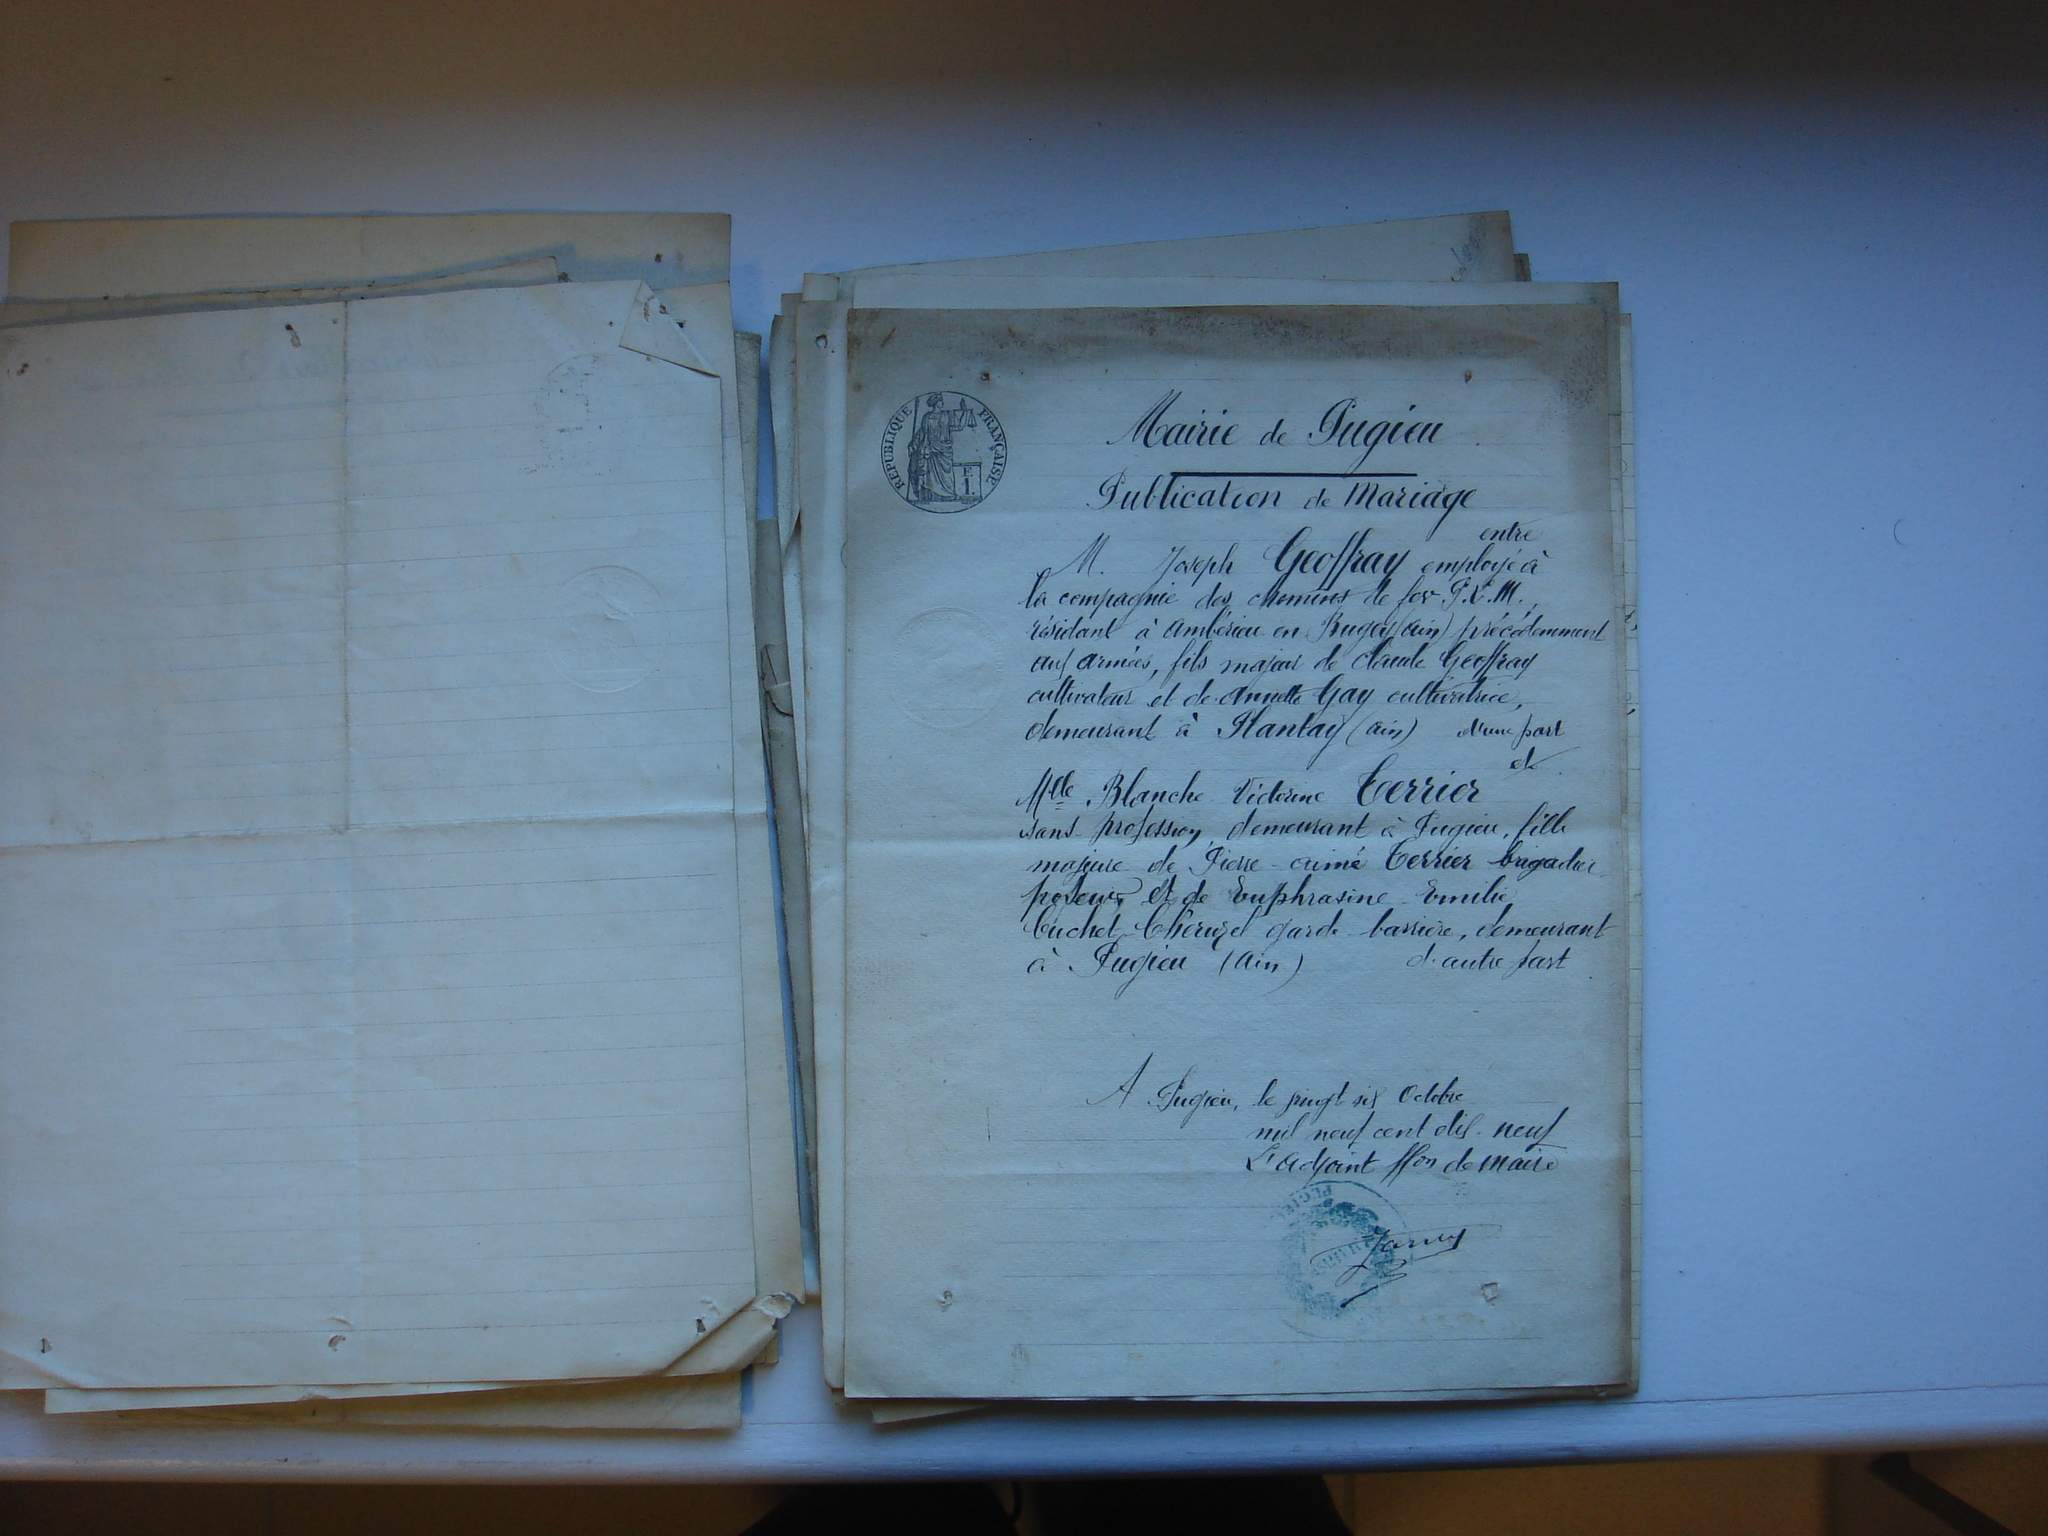 RÉPUBLIQUE FRANÇAISE
F
1.
Mairie de Pugieu
Publication de Mariage
entre
M. Joseph Geoffray employé à
la compagnie des chemins de fer P.L.M.,
résidant à Ambérieu en Bugey (Ain) précédemment
aux armées, fils majeur de Claude Geoffray
cultivateur et de Annette Gay cultivatrice,
demeurant à Plantay (Ain) d'une part
et
Mlle Blanche Victorine Terrier
sans profession, demeurant à Pugieu, fille
majeure de Pierre-aimé Terrier brigadier
poseur, et de Euphrasine Emilie
Cuchet Cheruzel garde-barrière, demeurant
à Pugieu (Ain) d'autre part
A Pugieu, le vingt six Octobre
mil neuf cent dix-neuf
L'adjoint ffon de maire
PUGIEU